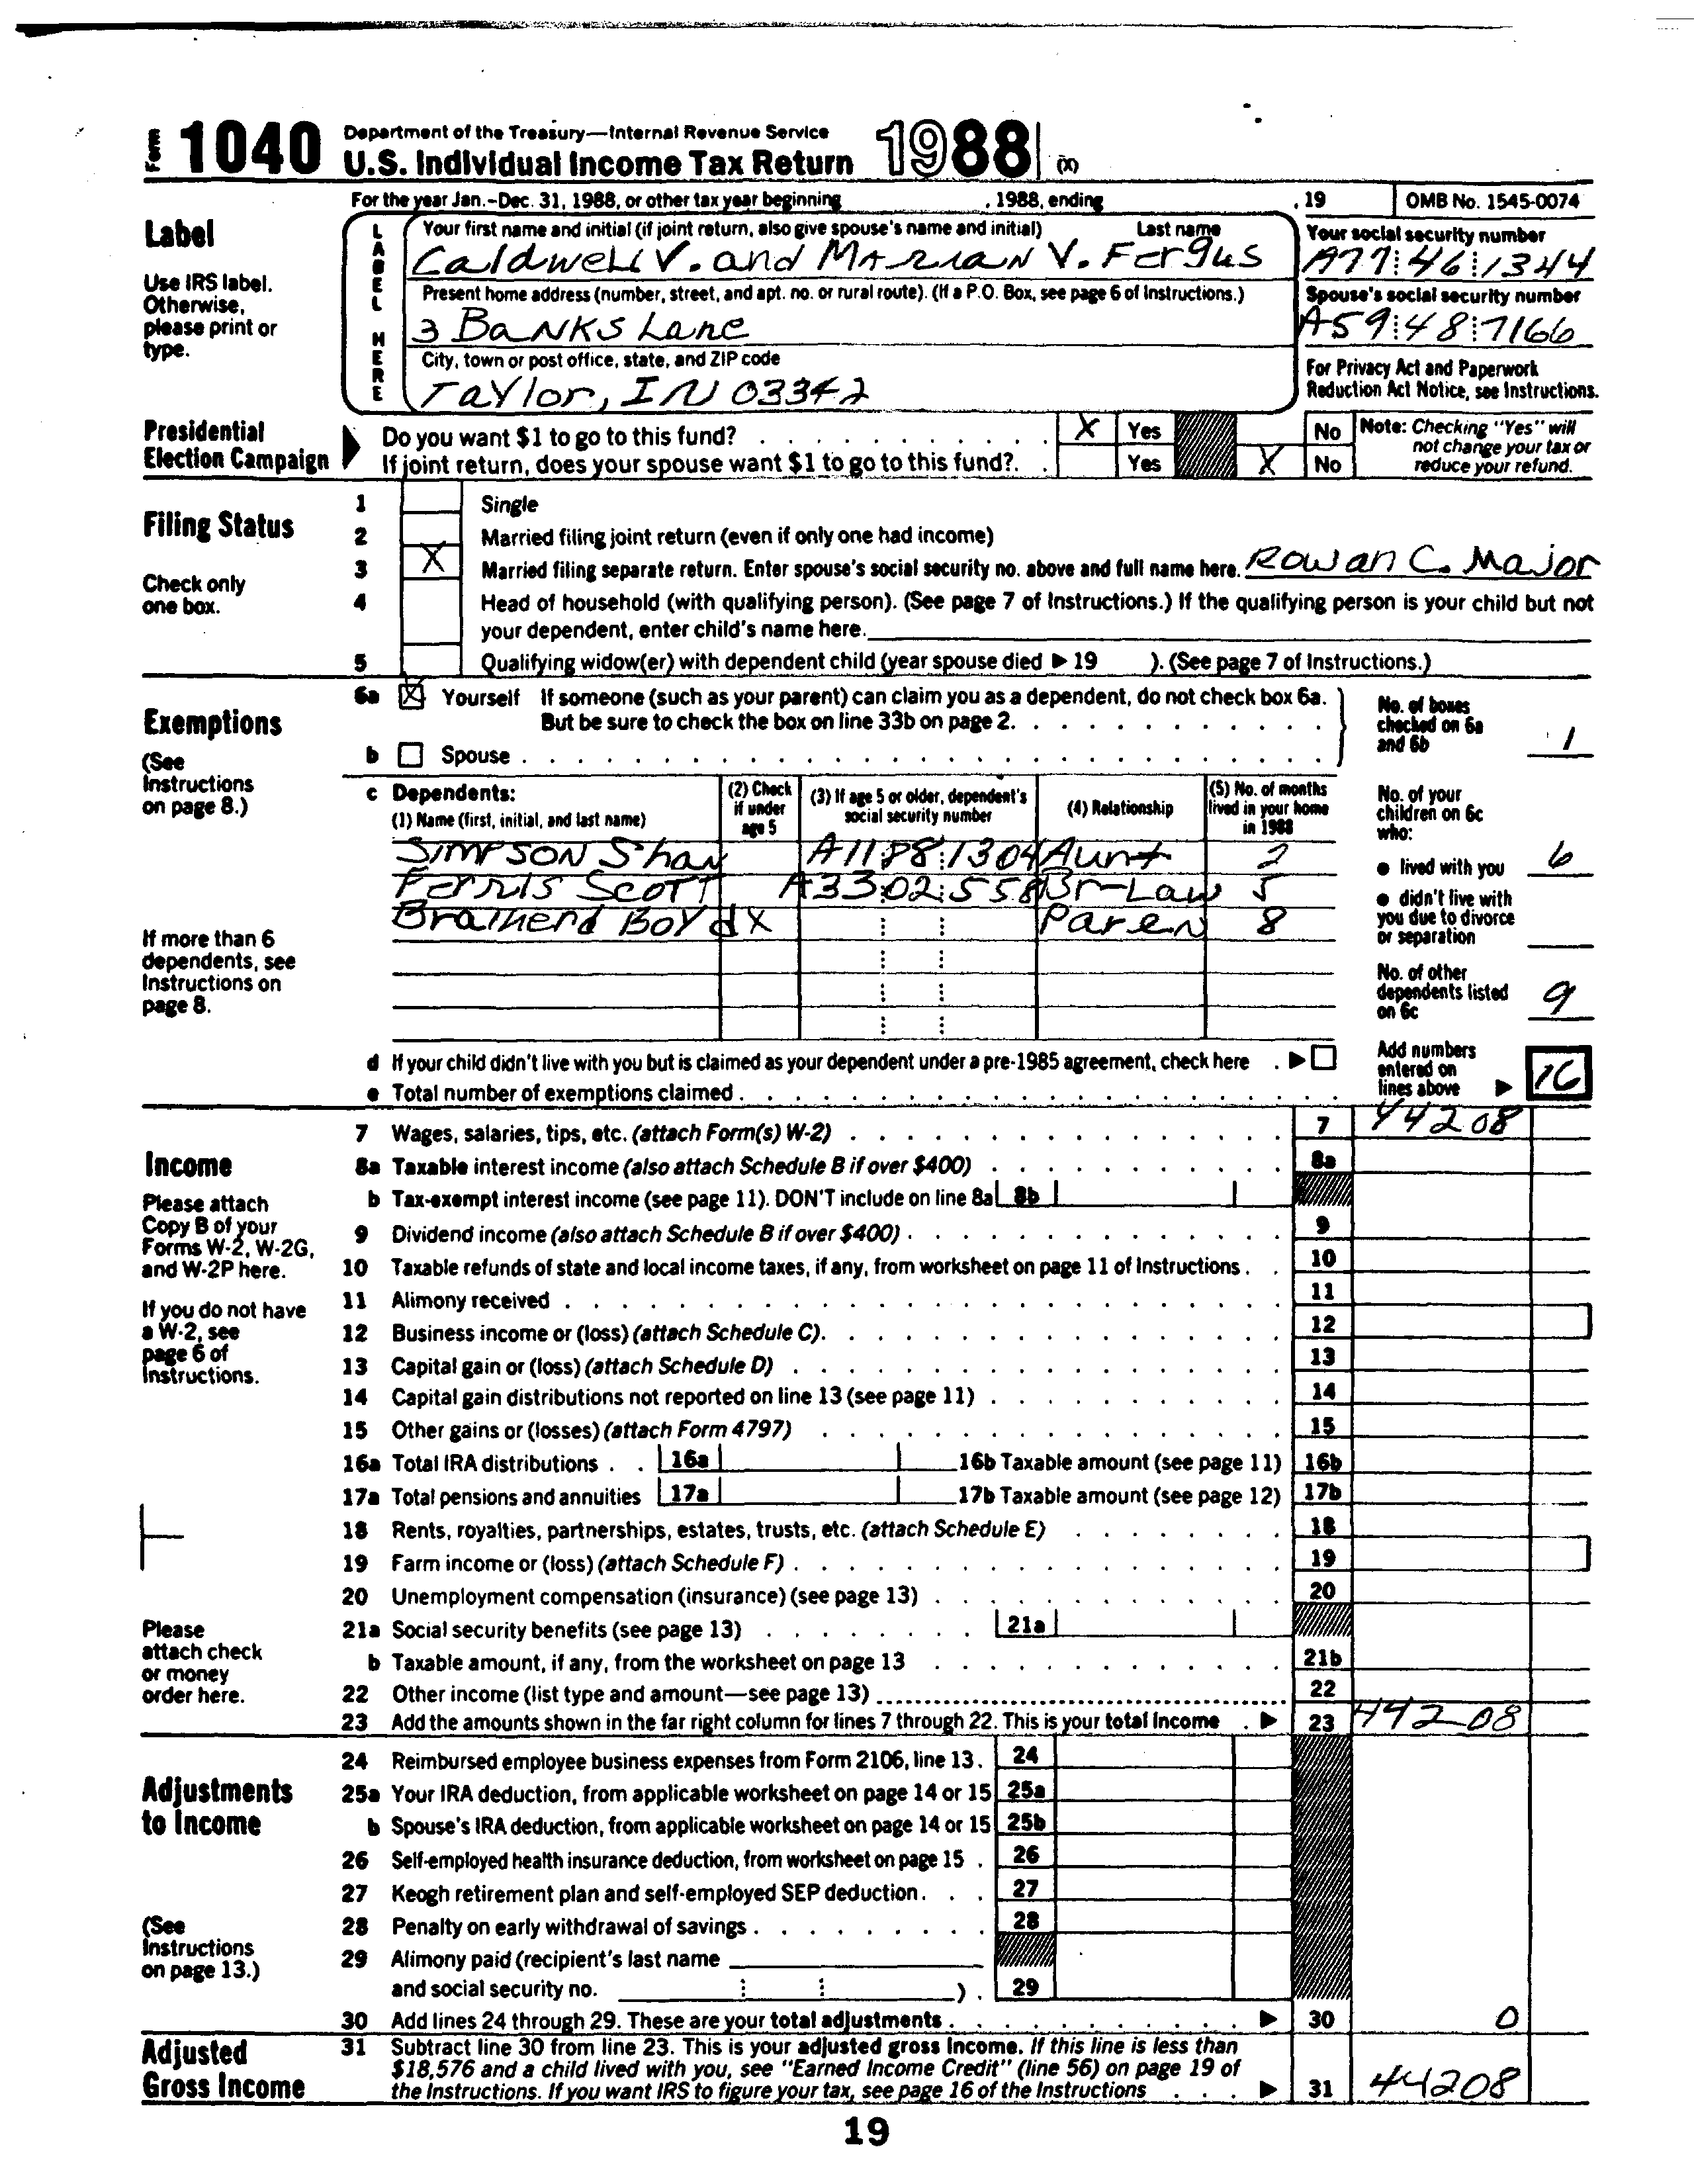 Form 1040 Department of the Treasury—Internal Revenue Service
U.S. Individual Income Tax Return 1988 (X)
For the year Jan.-Dec. 31, 1988, or other tax year beginning , 1988, ending , 19 OMB No. 1545-0074
Label
Use IRS label. Otherwise, please print or type.
LABEL HERE
Your first name and initial (if joint return, also give spouse's name and initial) Last name
Caldwell V. and Marian V. Fergus
Your social security number
A77 46 1344
Present home address (number, street, and apt. no. or rural route). (If a P.O. Box, see page 6 of Instructions.)
3 Banks Lane
Spouse's social security number
A59 48 7166
City, town or post office, state, and ZIP code
Taylor, IN 03342
For Privacy Act and Paperwork Reduction Act Notice, see Instructions.
Presidential Election Campaign
Do you want $1 to go to this fund? X Yes No
If joint return, does your spouse want $1 to go to this fund? Yes X No
Note: Checking "Yes" will not change your tax or reduce your refund.
Filing Status
Check only one box.
1 Single
2 Married filing joint return (even if only one had income)
3 X Married filing separate return. Enter spouse's social security no. above and full name here. Rowan C. Major
4 Head of household (with qualifying person). (See page 7 of Instructions.) If the qualifying person is your child but not
your dependent, enter child's name here.
5 Qualifying widow(er) with dependent child (year spouse died ▶ 19 ). (See page 7 of Instructions.)
Exemptions
(See Instructions on page 8.)
6a X Yourself If someone (such as your parent) can claim you as a dependent, do not check box 6a.
But be sure to check the box on line 33b on page 2.
b Spouse
No. of boxes checked on 6a and 6b 1
c Dependents:
(1) Name (first, initial, and last name)
(2) Check if under age 5
(3) If age 5 or older, dependent's social security number
(4) Relationship
(5) No. of months lived in your home in 1988
Simpson Shaw A11 88 1304 Aunt 2
Ferris Scott A33 02 558 Br-Law 5
Boyd X Paren 8
If more than 6 dependents, see Instructions on page 8.
No. of your children on 6c who:
● lived with you 6
● didn't live with you due to divorce or separation
No. of other dependents listed on 6c 9
d If your child didn't live with you but is claimed as your dependent under a pre-1985 agreement, check here ▶
e Total number of exemptions claimed
Add numbers entered on lines above ▶ 16
Income
Please attach Copy B of your Forms W-2, W-2G, and W-2P here.
If you do not have a W-2, see page 6 of Instructions.
Please attach check or money order here.
7 Wages, salaries, tips, etc. (attach Form(s) W-2) 7 44208
8a Taxable interest income (also attach Schedule B if over $400) 8a
b Tax-exempt interest income (see page 11). DON'T include on line 8a 8b
9 Dividend income (also attach Schedule B if over $400) 9
10 Taxable refunds of state and local income taxes, if any, from worksheet on page 11 of Instructions 10
11 Alimony received 11
12 Business income or (loss) (attach Schedule C) 12
13 Capital gain or (loss) (attach Schedule D) 13
14 Capital gain distributions not reported on line 13 (see page 11) 14
15 Other gains or (losses) (attach Form 4797) 15
16a Total IRA distributions 16a 16b Taxable amount (see page 11) 16b
17a Total pensions and annuities 17a 17b Taxable amount (see page 12) 17b
18 Rents, royalties, partnerships, estates, trusts, etc. (attach Schedule E) 18
19 Farm income or (loss) (attach Schedule F) 19
20 Unemployment compensation (insurance) (see page 13) 20
21a Social security benefits (see page 13) 21a
b Taxable amount, if any, from the worksheet on page 13 21b
22 Other income (list type and amount—see page 13) 22
23 Add the amounts shown in the far right column for lines 7 through 22. This is your total income ▶ 23 44208
Adjustments to Income
(See Instructions on page 13.)
24 Reimbursed employee business expenses from Form 2106, line 13 24
25a Your IRA deduction, from applicable worksheet on page 14 or 15 25a
b Spouse's IRA deduction, from applicable worksheet on page 14 or 15 25b
26 Self-employed health insurance deduction, from worksheet on page 15 26
27 Keogh retirement plan and self-employed SEP deduction 27
28 Penalty on early withdrawal of savings 28
29 Alimony paid (recipient's last name
and social security no. ) 29
30 Add lines 24 through 29. These are your total adjustments ▶ 30 0
Adjusted Gross Income
31 Subtract line 30 from line 23. This is your adjusted gross income. If this line is less than
$18,576 and a child lived with you, see "Earned Income Credit" (line 56) on page 19 of
the Instructions. If you want IRS to figure your tax, see page 16 of the Instructions ▶ 31 44208
19